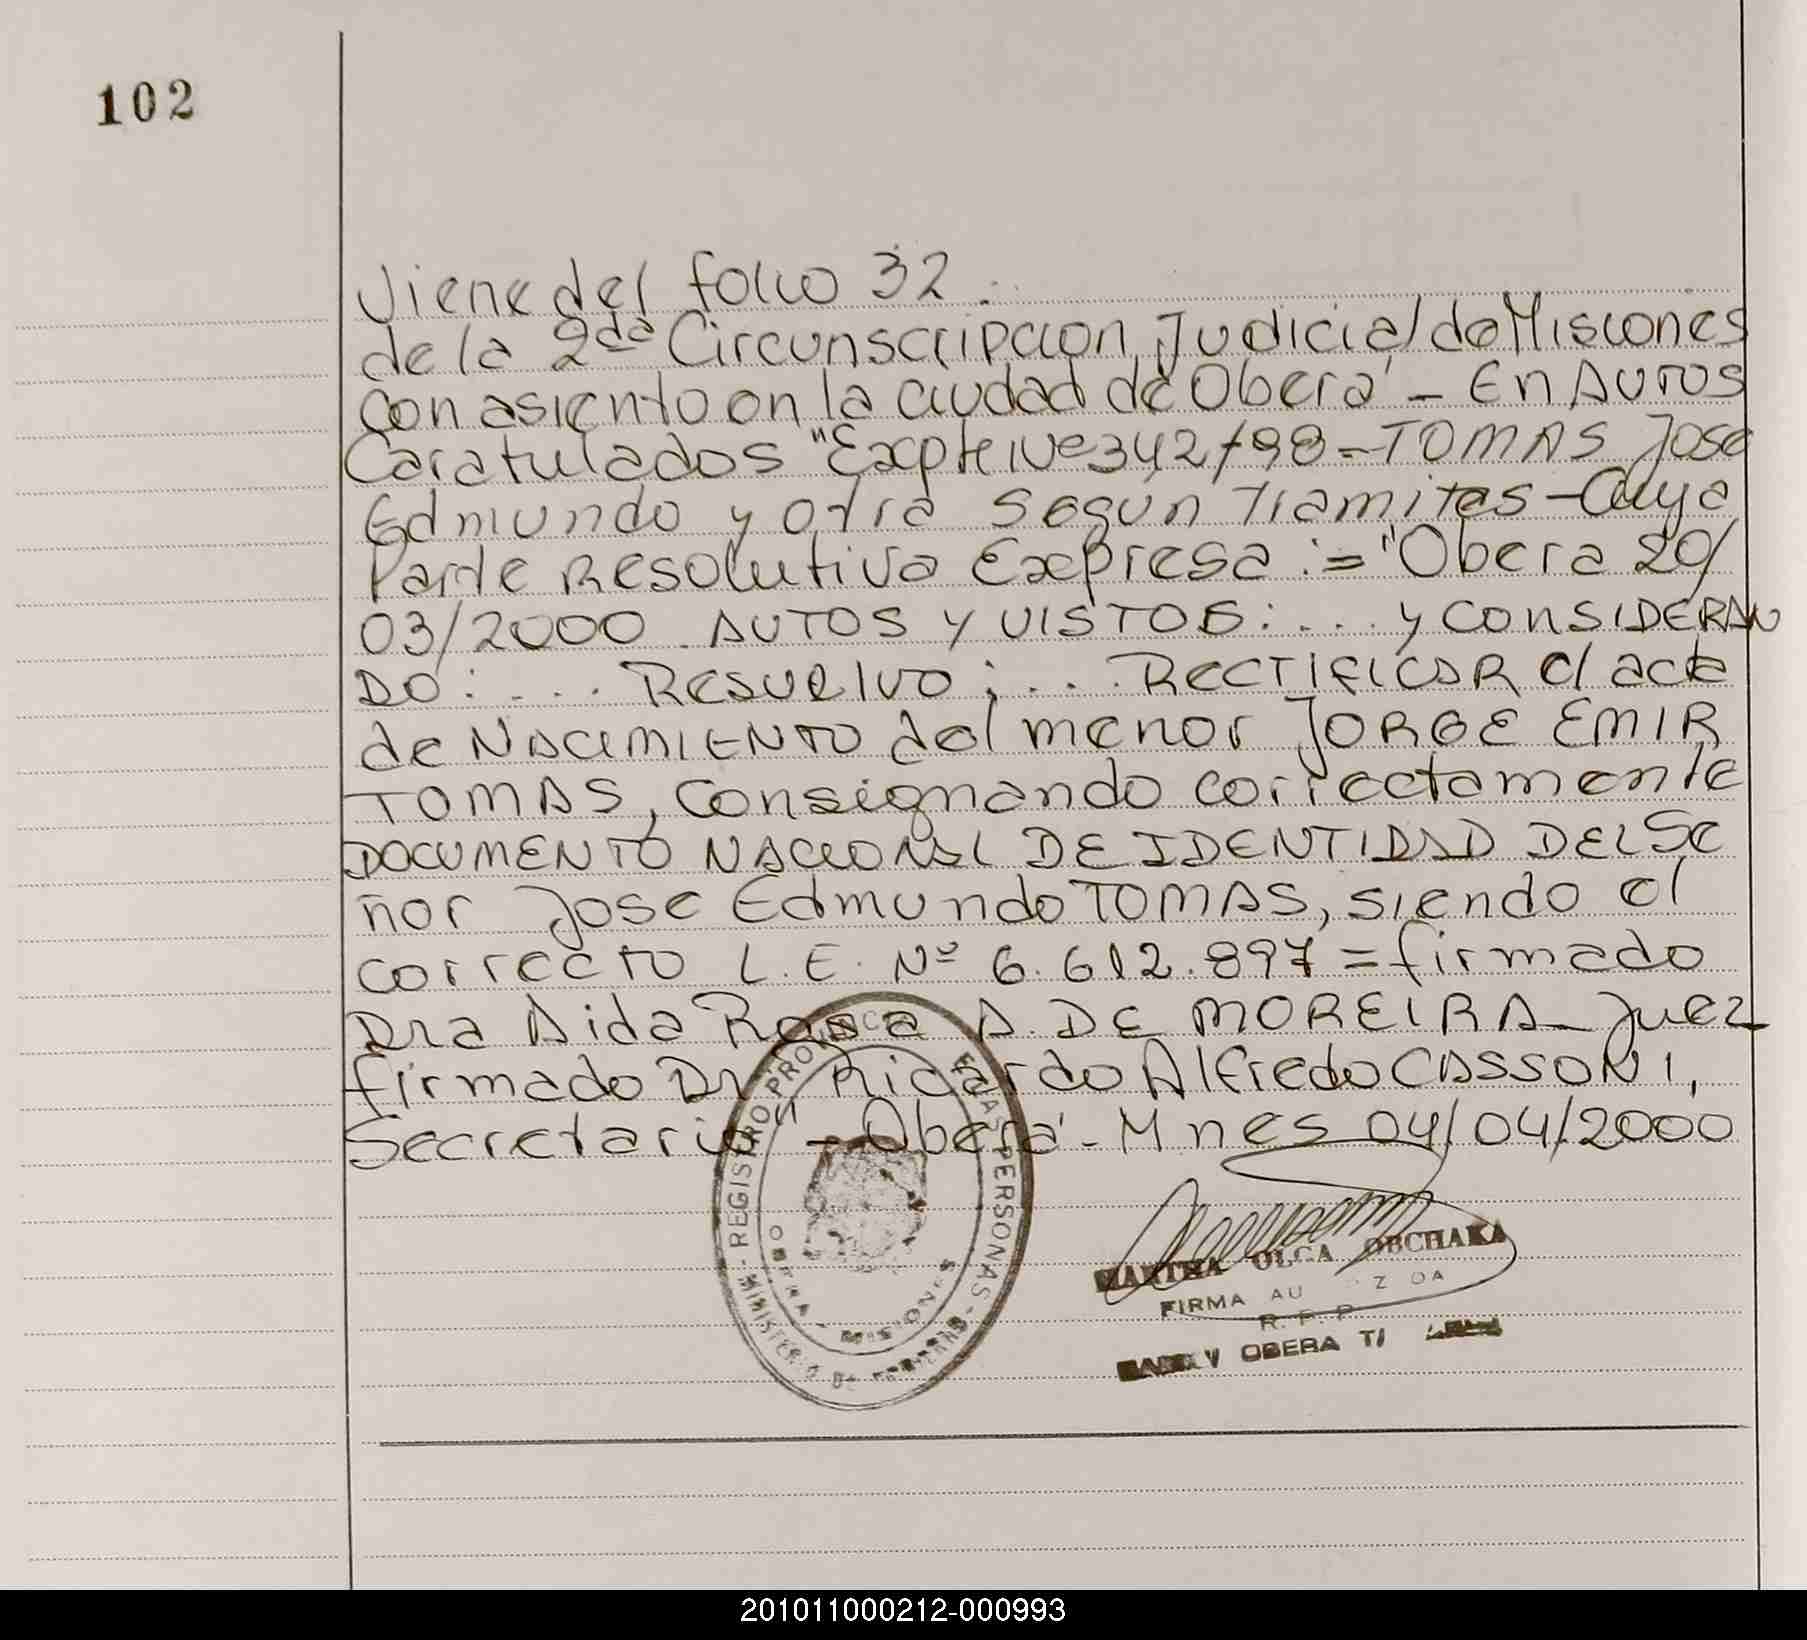 102
Viene del folio 32.
de la 2da Circunscripcion Judicial de Misiones
con asiento en la ciudad de Oberá - En AUTOS
Caratulados "Expte Nº 342/98 - TOMAS Jose
Edmundo y otra segun Tramites - Cuya
Parte Resolutiva Expresa := "Obera 20/
03/2000 AUTOS Y VISTOS: .... y CONSIDERAN
DO: .... Resuelvo: ... RECTIFICAR el acta
de NACIMIENTO del menor JORGE EMIR
TOMAS, consignando correctamente
DOCUMENTO NACIONAL DE IDENTIDAD DEL Se
ñor Jose Edmundo TOMAS, siendo el
correcto L.E. Nº 6.612.897 = firmado
Dra Aida Rosa A. DE MOREIRA - Juez
firmado Dr Ricardo Alfredo CASSONI,
Secretario" - Oberá - Mnes 04/04/2000
REGISTRO PROVINC PERSONAS - MINISTERIO DE GOBIERNO
OBERA - MISIONES
MARTHA OLGA OBCHAKA
FIRMA AU Z DA
R. P. P.
OBERA
201011000212-000993